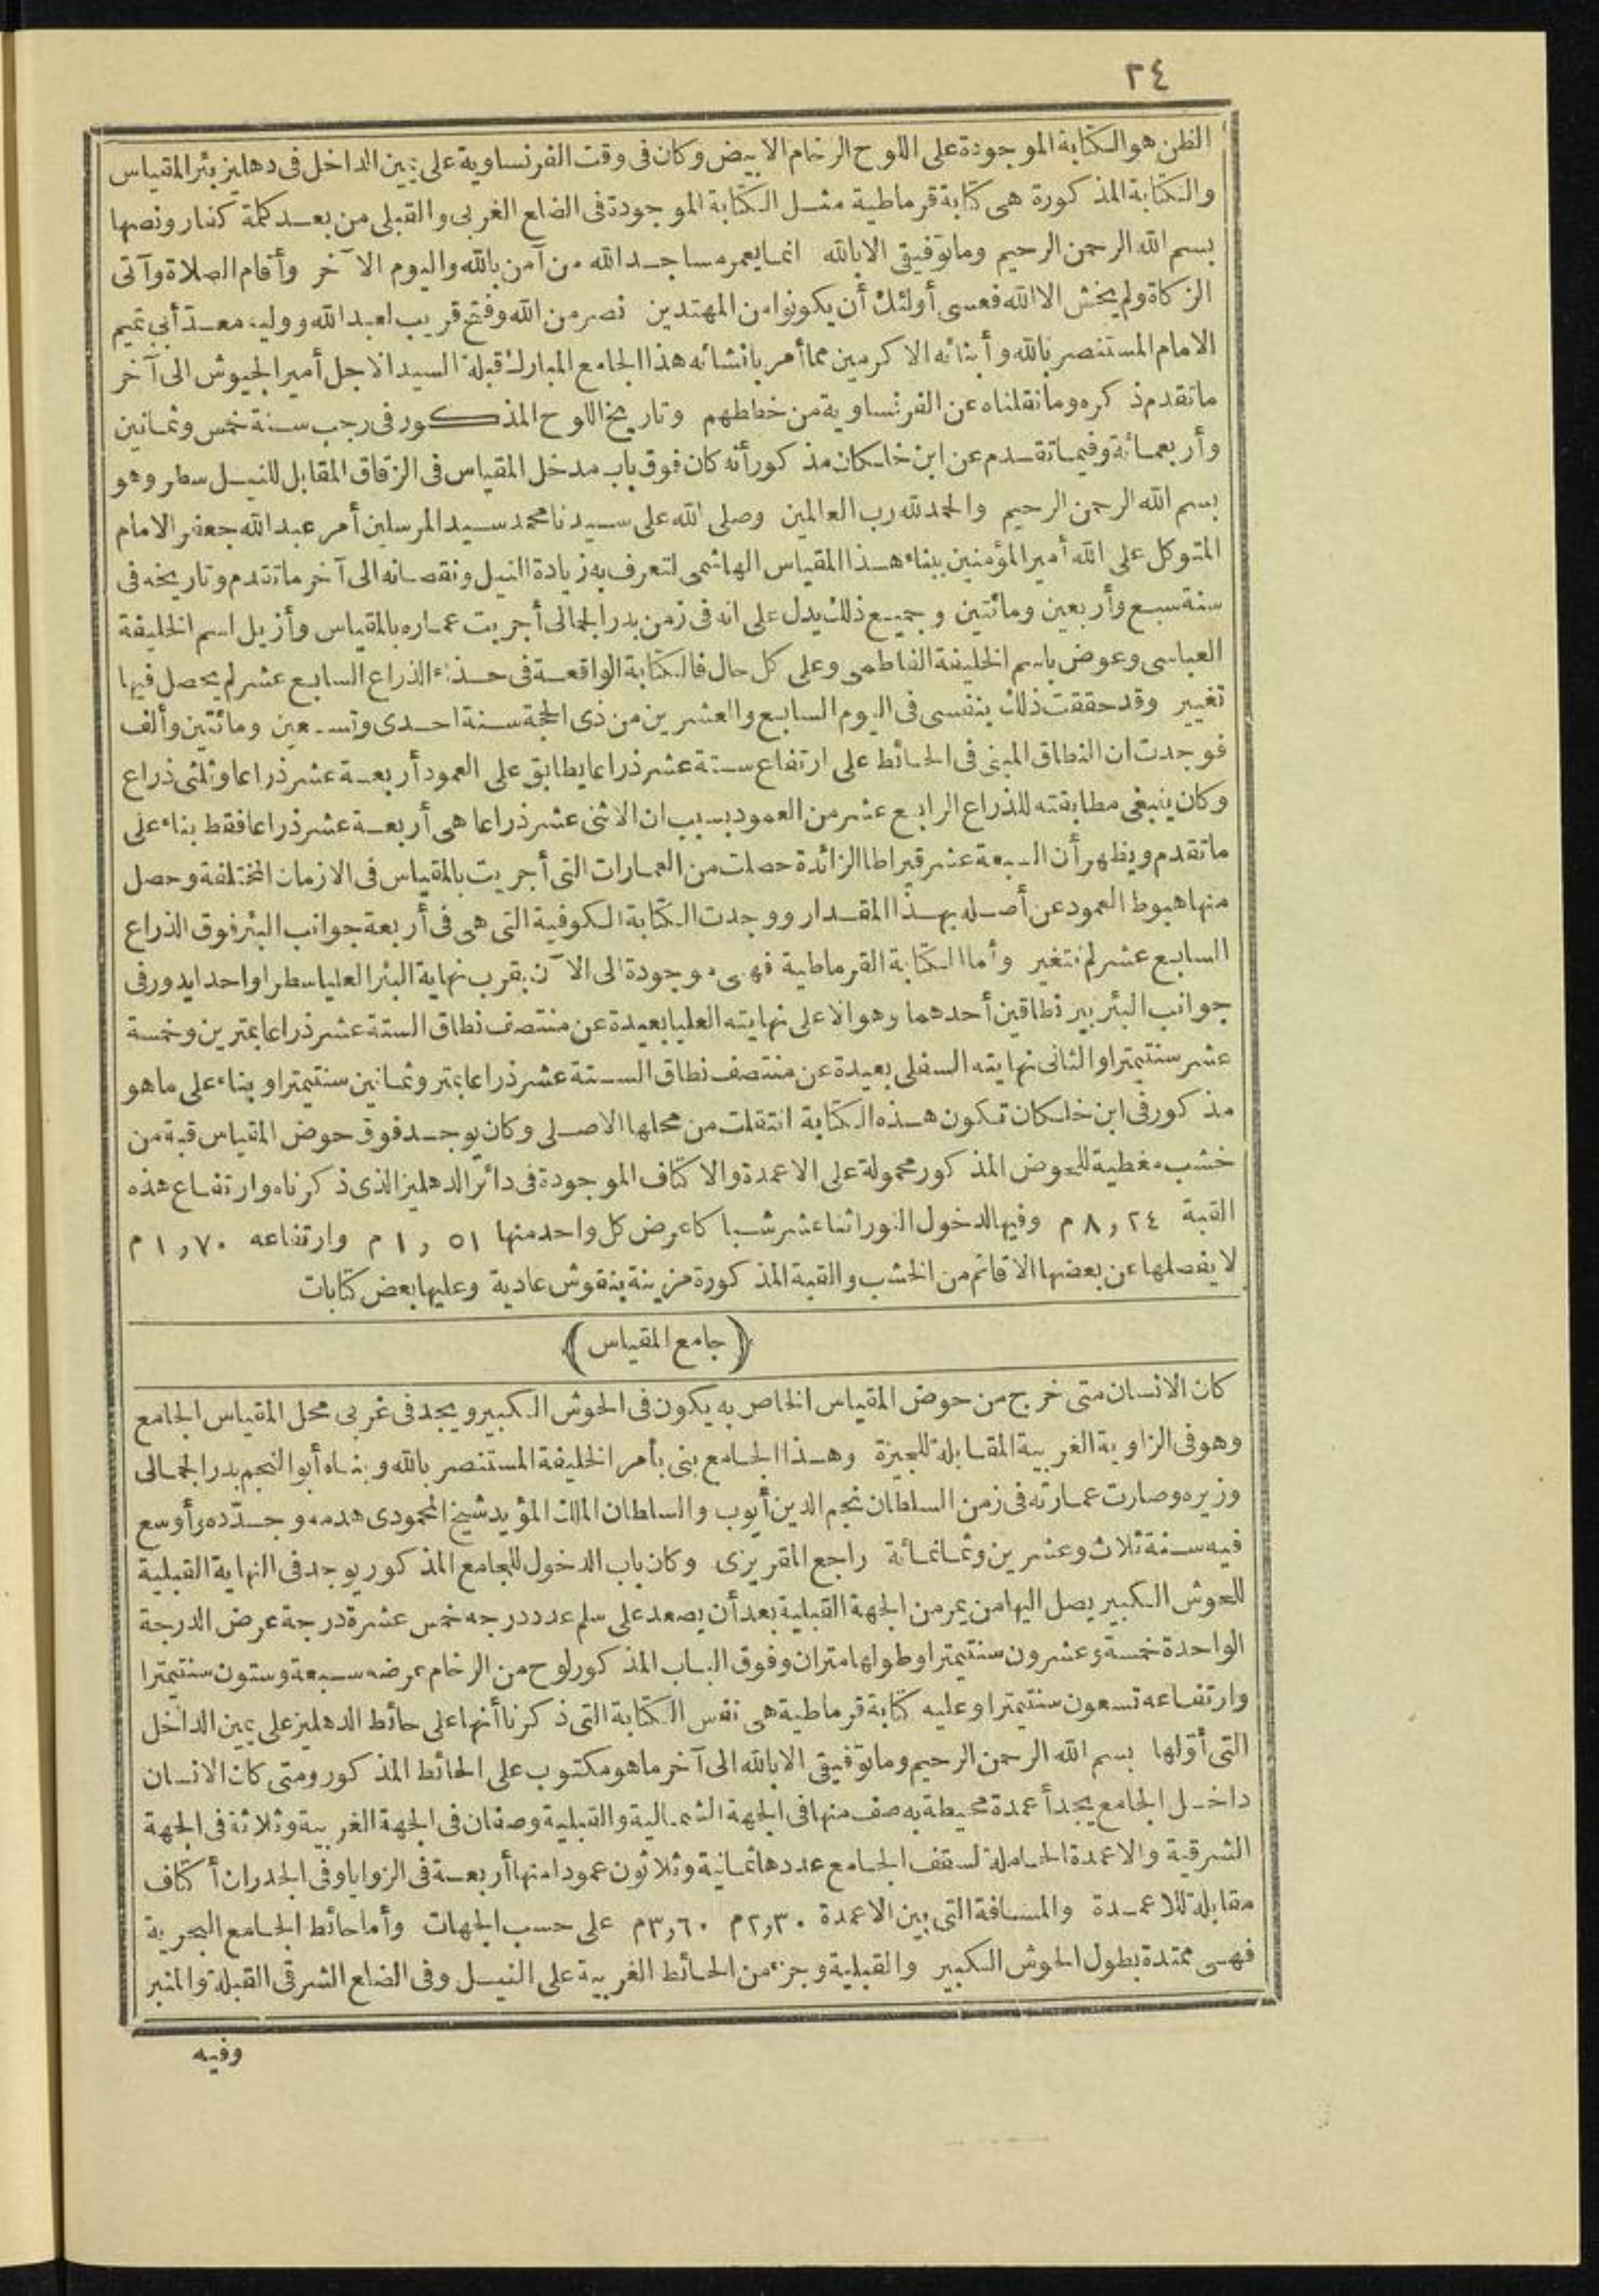 ٢٤
الظن هو الكتابة الموجودة على اللوح الرخام الابيض وكان فى وقت الفرنساوية على يمين الداخل فى دهليز بئر المقياس
والكتابة المذكورة هى كتابة قرماطية مثل الكتابة الموجودة فى الضلع الغربى والقبلى من بعد كلة كفار ونصها
بسم الله الرحمن الرحيم وما توفيقى الا بالله انما يعمر مساجد الله من آمن بالله واليوم الآخر وأقام الصلاة وآتى
الزكاة ولم يخش الا الله فعسى أولئك أن يكونوا من المهتدين نصر من الله وفتح قريب لعبد الله ووليه معد أبى تميم
الامام المستنصر بالله وأبنائه الاكرمين مما أمر بانشائه هذا الجامع المبارك قبلة السيد الاجل أمير الجيوش الى آخر
ما تقدم ذكره وما نقلناه عن الفرنساوية من خططهم وتاريخ اللوح المذكور فى رجب سنة خمس وثمانين
وأربعمائة وفيما تقدم عن ابن خلكان مذكور أنه كان فوق باب مدخل المقياس فى الزقاق المقابل للنيل سطر وهو
بسم الله الرحمن الرحيم والحمد لله رب العالمين وصلى الله على سيدنا محمد سيد المرسلين أمر عبد الله جعفر الامام
المتوكل على الله أمير المؤمنين ببناء هذا المقياس الهاشمى لتعرف به زيادة النيل ونقصانه الى آخر ما تقدم وتاريخه فى
سنة سبع وأربعين ومائتين وجميع ذلك يدل على انه فى زمن بدر الجمالى أجريت عماره بالمقياس وأزيل اسم الخليفة
العباسى وعوض باسم الخليفة الفاطمى وعلى كل حال فالكتابة الواقعة فى حذاء الذراع السابع عشر لم يحصل فيها
تغيير وقد حققت ذلك بنفسى فى اليوم السابع والعشرين من ذى الحجة سنة احدى وتسعين ومائتين وألف
فوجدت ان النطاق المبنى فى الحائط على ارتفاع ستة عشر ذراعا يطابق على العمود أربعة عشر ذراعا وثلثى ذراع
وكان ينبغى مطابقته للذراع الرابع عشر من العمود بسبب ان الاثنى عشر ذراعا هى أربعة عشر ذراعا فقط بناء على
ما تقدم ويظهر أن السبعة عشر قيراطا الزائدة حصلت من العمارات التى أجريت بالمقياس فى الازمان المختلفة وحصل
منها هبوط العمود عن أصله بهذا المقدار ووجدت الكتابة الكوفية التى هى فى أربعة جوانب البئر فوق الذراع
السابع عشر لم تتغير وأما الكتابة القرماطية فهى موجودة الى الآن بقرب نهاية البئر العليا سطرا واحدا يدور فى
جوانب البئر بين نطاقين أحدهما وهو الاعلى نهايته العليا بعيدة عن منتصف نطاق الستة عشر ذراعا بمترين وخمسة
عشر سنتيمترا والثانى نهايته السفلى بعيدة عن منتصف نطاق الستة عشر ذراعا بمتر وثمانين سنتيمترا وبناء على ما هو
مذكور فى ابن خلكان تكون هذه الكتابة انتقلت من محلها الاصلى وكان يوجد فوق حوض المقياس قبة من
خشب مغطية للحوض المذكور محمولة على الاعمدة والاكتاف الموجودة فى دائر الدهليز الذى ذكرناه وارتفاع هذه
القبة ٨,٢٤ م وفيها لدخول النور اثنا عشر شباكا عرض كل واحد منها ١,٥١ م وارتفاعه ١,٧٠ م
لا يفصلها عن بعضها الا قائم من الخشب والقبة المذكورة مزينة بنقوش عادية وعليها بعض كتابات
﴿ جامع المقياس ﴾
كان الانسان متى خرج من حوض المقياس الخاص به يكون فى الحوش الكبير ويجد فى غربى محل المقياس الجامع
وهو فى الزاوية الغربية المقابلة للجيزة وهذا الجامع بنى بأمر الخليفة المستنصر بالله وبناه أبو النجم بدر الجمالى
وزيره وصارت عمارته فى زمن السلطان نجم الدين أيوب والسلطان الملك المؤيد شيخ المحمودى هدمه وجدّده وأوسع
فيه سنة ثلاث وعشرين وثمانمائة راجع المقريزى وكان باب الدخول للجامع المذكور يوجد فى النهاية القبلية
للحوش الكبير يصل اليها من يمر من الجهة القبلية بعد أن يصعد على سلم عدد درجه خمس عشرة درجة عرض الدرجة
الواحدة خمسة وعشرون سنتيمترا وطولها متران وفوق الباب المذكور لوح من الرخام عرضه سبعة وستون سنتيمترا
وارتفاعه تسعون سنتيمترا وعليه كتابة قرماطية هى نفس الكتابة التى ذكرنا أنها على حائط الدهليز على يمين الداخل
التى أوّلها بسم الله الرحمن الرحيم وما توفيقى الا بالله الى آخر ما هو مكتوب على الحائط المذكور ومتى كان الانسان
داخل الجامع يجد أعمدة محيطة به صف منها فى الجهة الشمالية والقبلية وصفان فى الجهة الغربية وثلاثة فى الجهة
الشرقية والاعمدة الحاملة لسقف الجامع عددها ثمانية وثلاثون عمودا منها أربعة فى الزوايا وفى الجدران أكتاف
مقابلة للاعمدة والمسافة التى بين الاعمدة ٢,٣٠م ٣,٦٠م على حسب الجهات وأما حائط الجامع البحرية
فهى ممتدة بطول الحوش الكبير والقبلية وجزء من الحائط الغربية على النيل وفى الضلع الشرقى القبلة والمنبر
وفيه